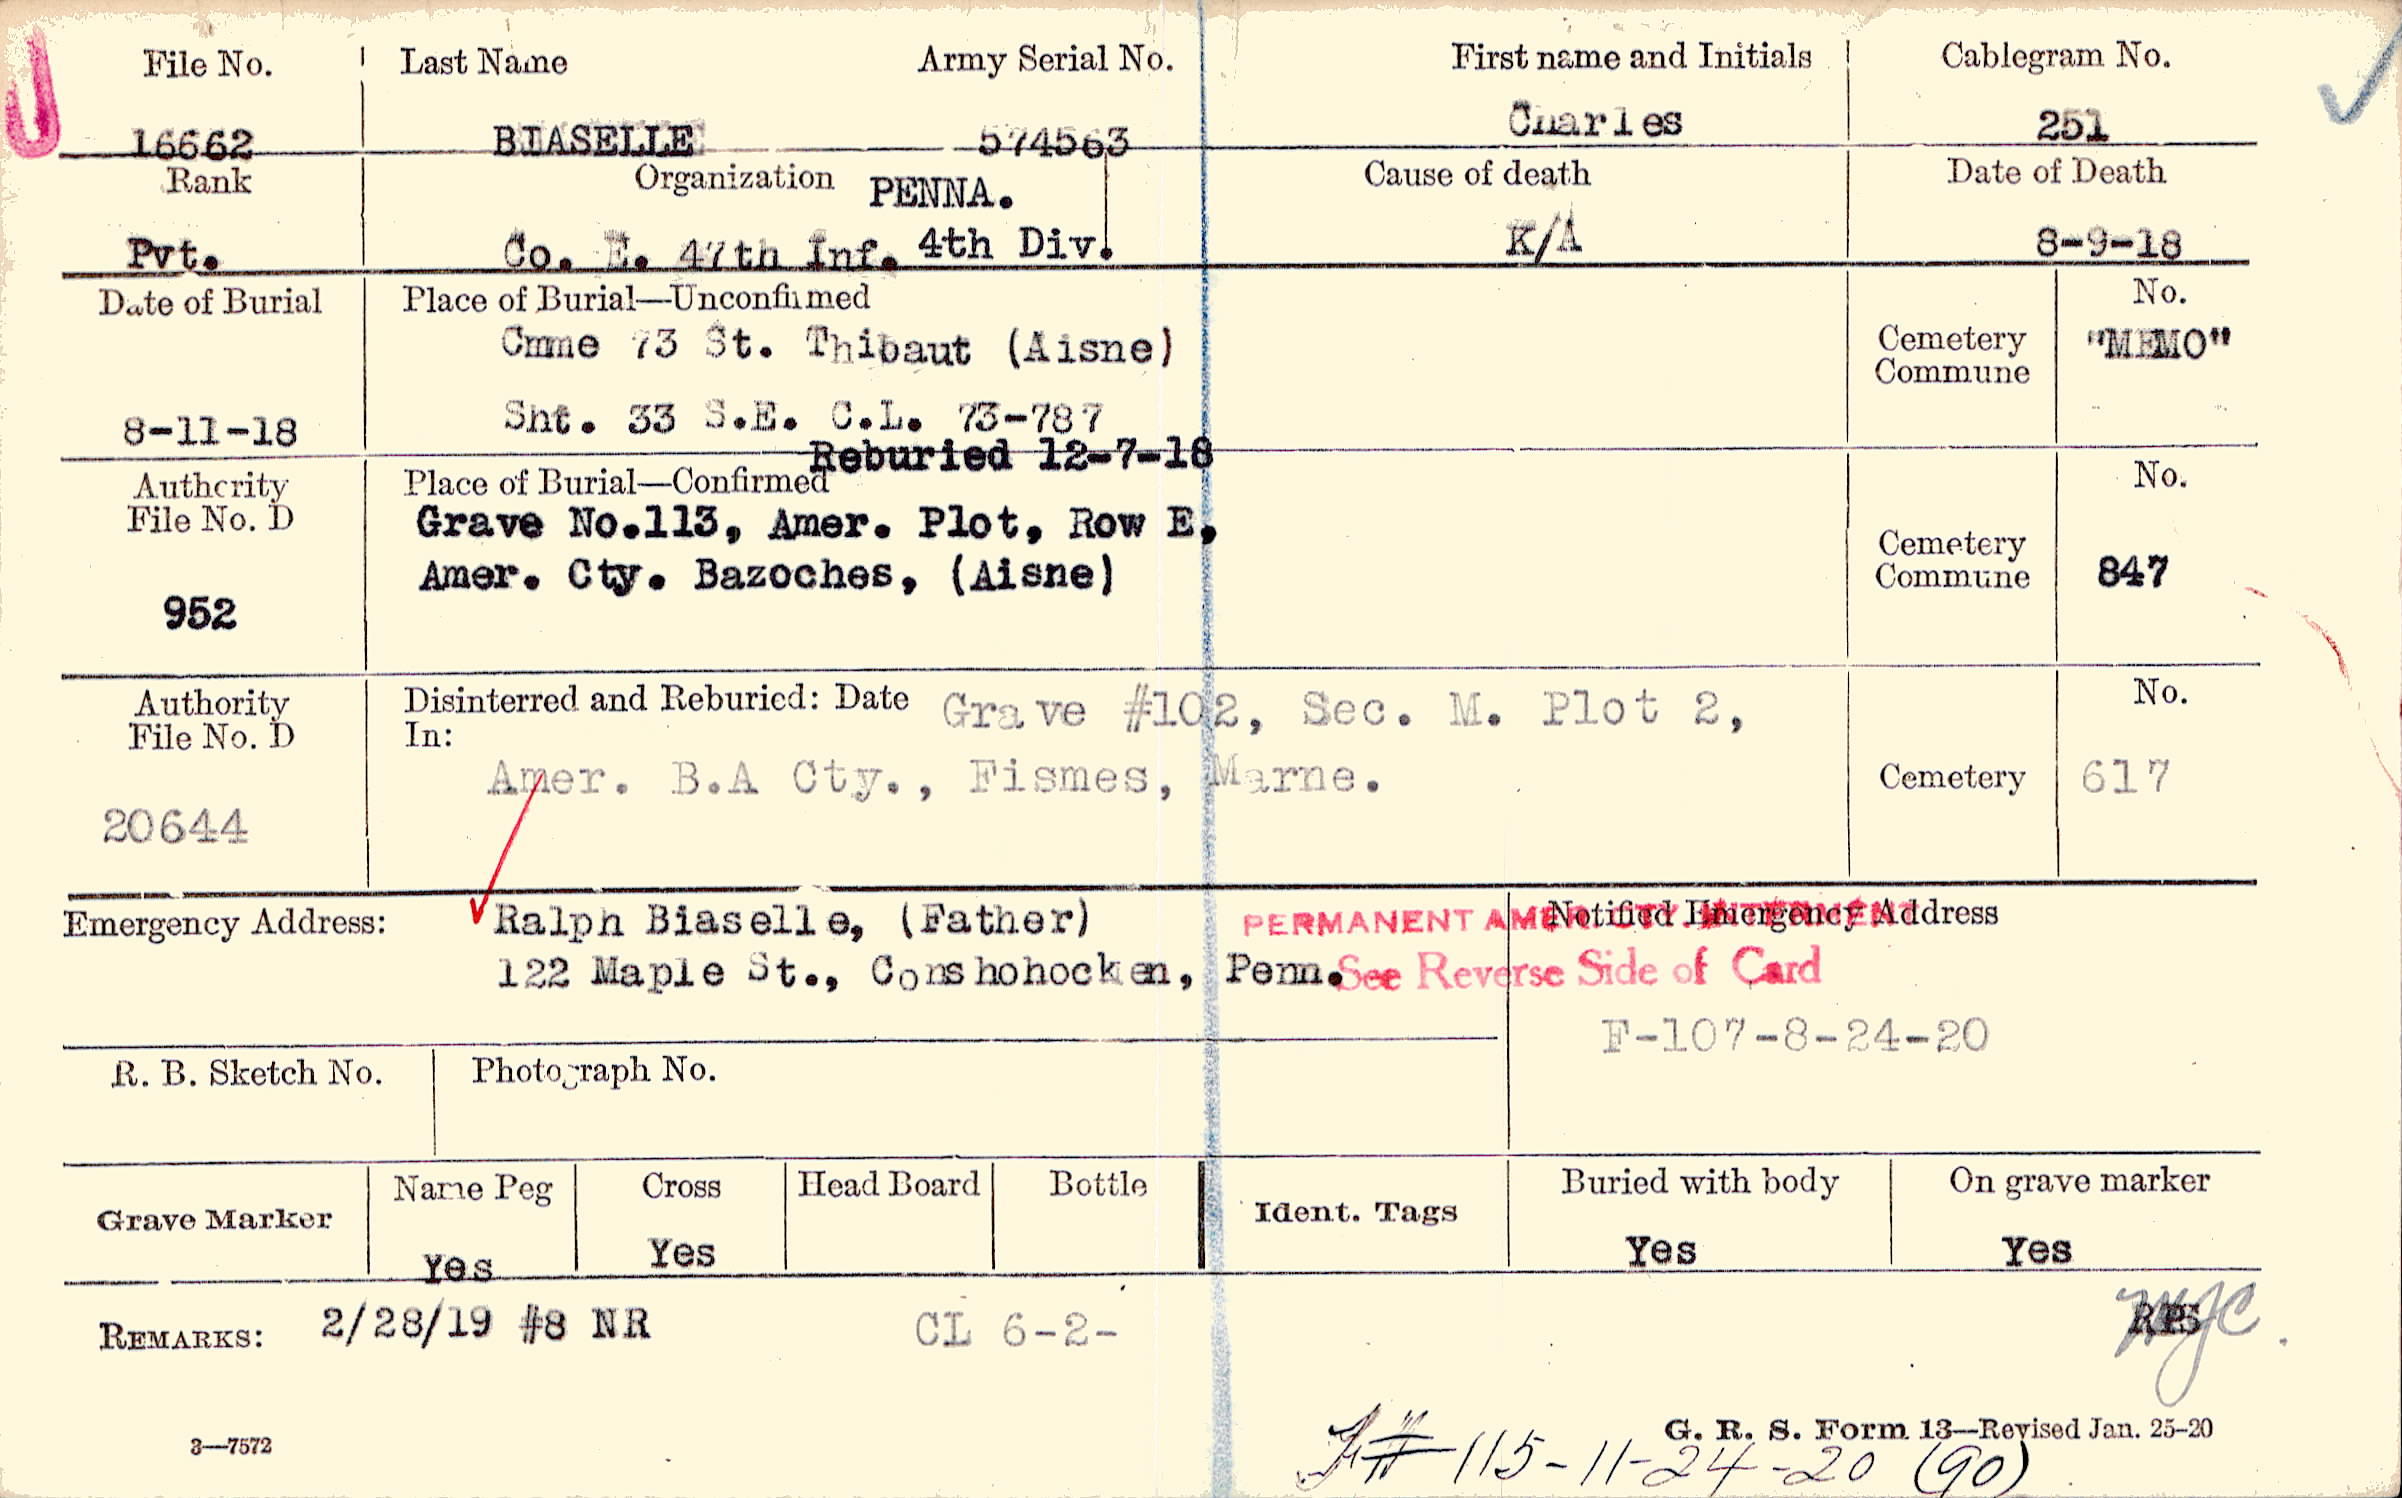 File No. Last Name Army Serial No. First name and Initials Cablegram No.
16662 BIASELLE 574563 Charles 251
Rank Organization PENNA. Cause of death Date of Death
Pvt. Co. E. 47th Inf. 4th Div. K/A 8-9-18
Date of Burial Place of Burial—Unconfirmed No.
Cmme 73 St. Thibaut (Aisne) Cemetery "MEMO"
Commune
8-11-18 Sht. 33 S.E. C.L. 73-787
Reburied 12-7-18
Authority Place of Burial—Confirmed No.
File No. D Grave No.113, Amer. Plot, Row E,
Cemetery
Amer. Cty. Bazoches, (Aisne) Commune 847
952
Authority Disinterred and Reburied: Date Grave #102, Sec. M. Plot 2, No.
File No. D In:
Amer. B.A Cty., Fismes, Marne. Cemetery 617
20644
Emergency Address: Ralph Biaselle, (Father) PERMANENT AMER. CTY. INTERMENT Notified Emergency Address
122 Maple St., Conshohocken, Penn. See Reverse Side of Card
F-107-8-24-20
R. B. Sketch No. Photograph No.
Name Peg Cross Head Board Bottle Buried with body On grave marker
Grave Marker Ident. Tags
Yes Yes Yes Yes
REMARKS: 2/28/19 #8 NR CL 6-2- MJC
G. R. S. Form 13—Revised Jan. 25-20
3—7572
F# 115-11-24-20 (90)